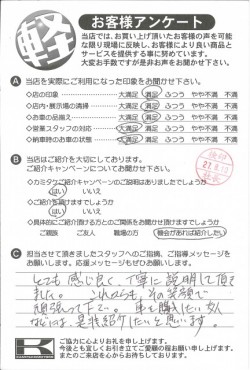 軽
お客様アンケート
当店では、お買い上げ頂いたお客様の声を可能
な限り現場に反映し、お客様により良い商品と
サービスを提供する事に努めています。
大変お手数ですが是非お声をお聞かせ下さい。
A 当店を実際にご利用になった印象をお聞かせ下さい。
◇店の印象 大満足 満足 ふつう やや不満 不満
◇店内・展示場の清掃 大満足 満足 ふつう やや不満 不満
◇お車の品揃え 大満足 満足 ふつう やや不満 不満
◇営業スタッフの対応 大満足 満足 ふつう やや不満 不満
◇納車時のお車の状態 大満足 満足 ふつう やや不満 不満
B 当店はご紹介を大切にしております。
ご紹介キャンペーンについてお聞かせ下さい。
◇カミタケご紹介キャンペーンのご説明はありましたでしょうか
はい いいえ
◇ご紹介を頂けますでしょうか
はい いいえ
◇具体的にご紹介頂ける方とのご関係をお聞かせ頂けますでしょうか
ご親族 ご友人 職場の方 機会があれば紹介したい
C 担当させて頂きましたスタッフへのご指摘、ご指導を
お願いします。応援メッセージもぜひお願いします。
とても感じ良く、丁寧に説明して頂き
ました。これからも、その笑顔で
頑張って下さい。車を購入したい友人
などには、是非紹介したいと思います。
K
ご協力に心よりお礼を申し上げます。
今後とも宜しくお引立てご愛顧の程お願い申し上げます。
またのご来店を心からお待ちしております。